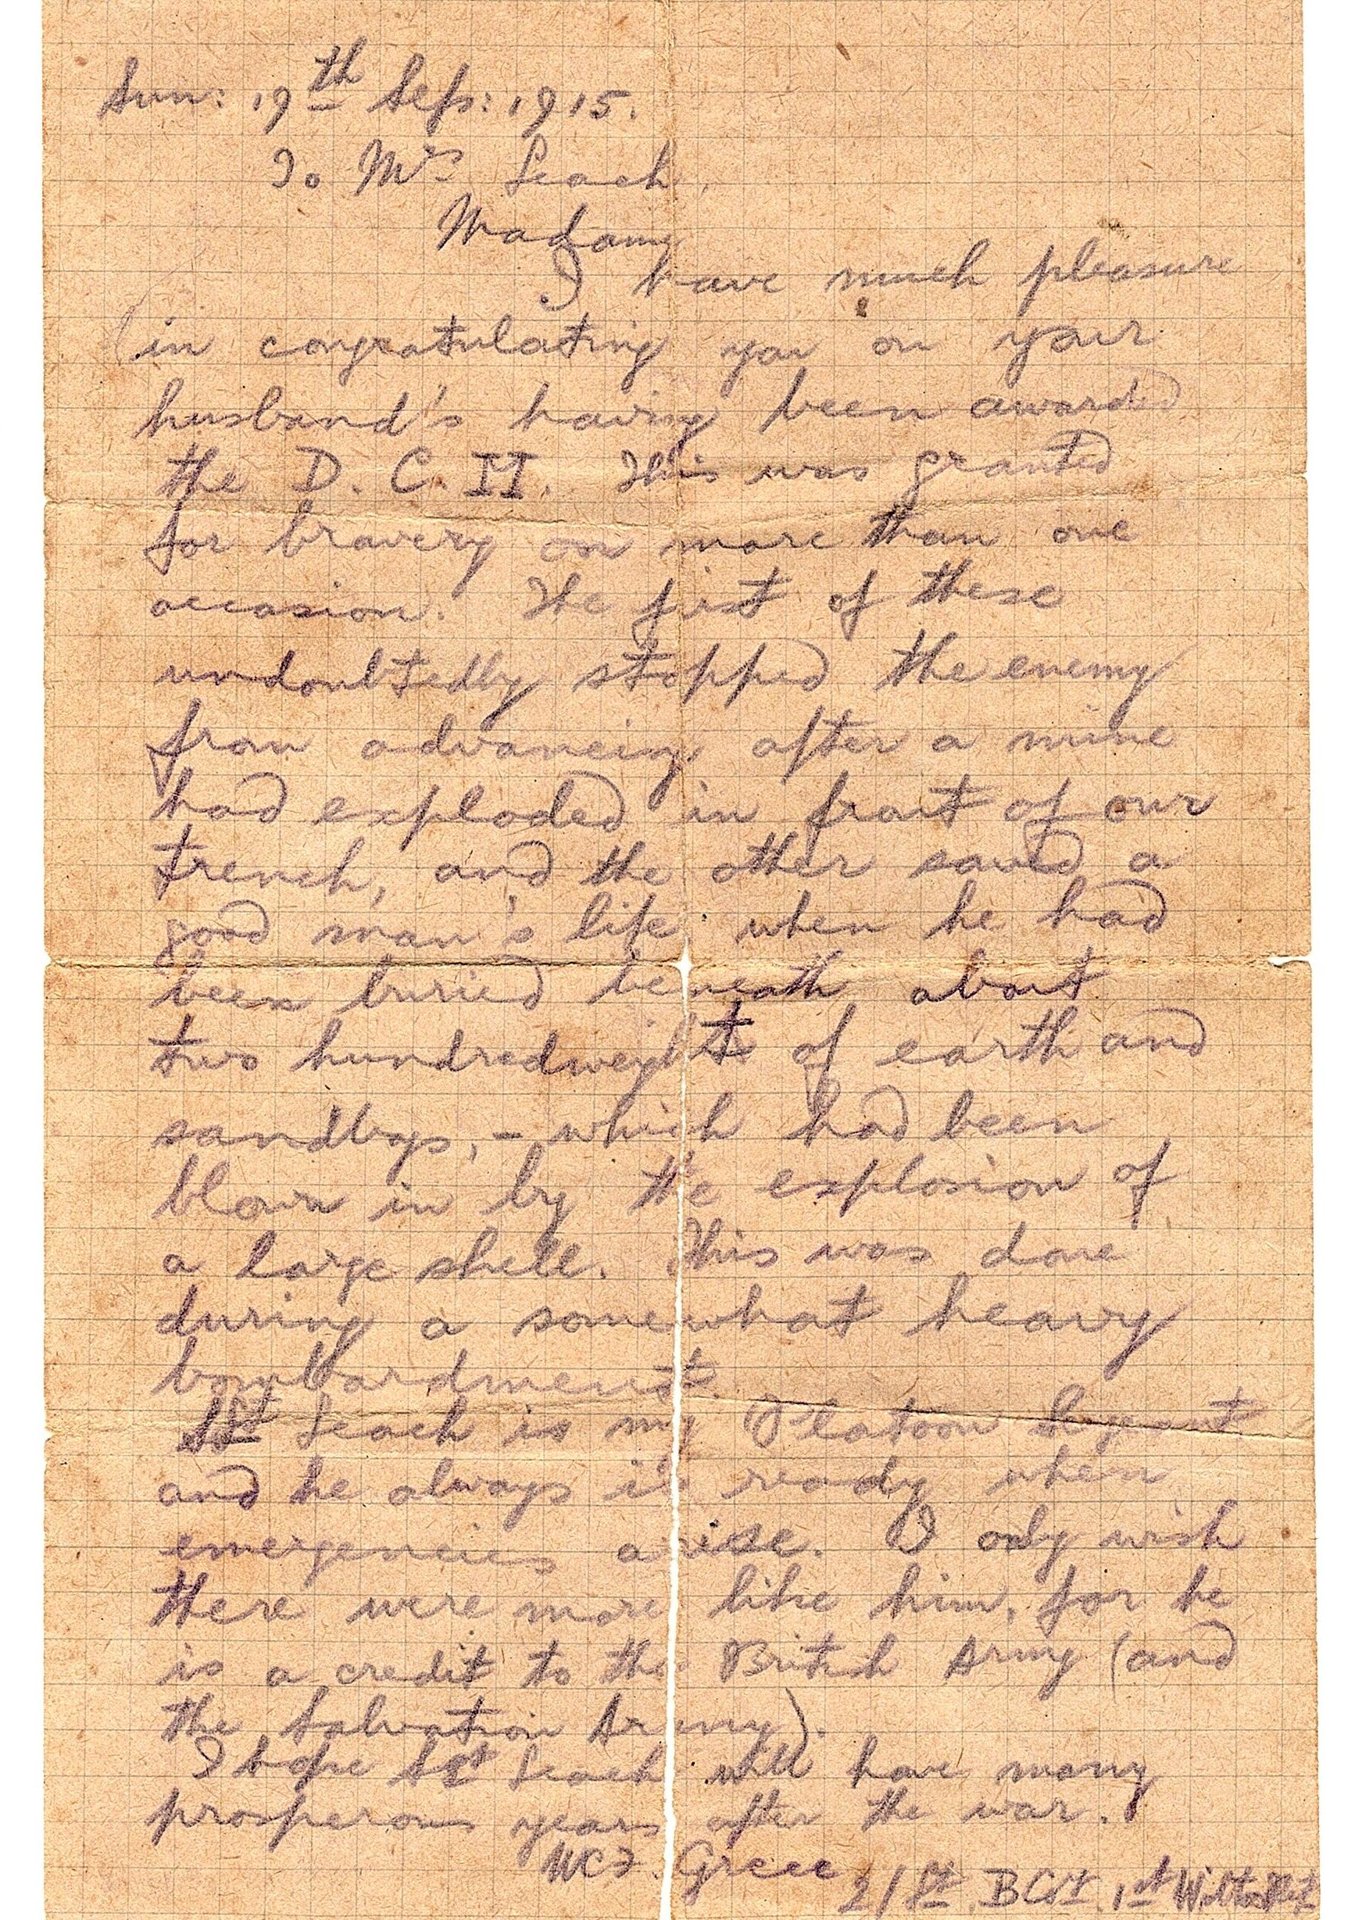 Sun: 19th Sep: 1915.
To Mrs Leach,
Madam,
I have much pleasure
in congratulating you on your
husband's having been awarded
the D.C.M. This was granted
for bravery on more than one
occasion. The first of these
undoubtedly stopped the enemy
from advancing after a mine
had exploded in front of our
trench, and the other saved a
good man's life when he had
been buried beneath about
two hundredweights of earth and
sandbags, - which had been
blown in by the explosion of
a large shell. This was done
during a somewhat heavy
bombardment.
Sgt Leach is my Platoon Sergeant
and he always is ready when
emergencies arise. I only wish
there were more like him, for he
is a credit to the British Army (and
the Salvation Army).
I hope Sgt Leach will have many
prosperous years after the war.
2/Lt. 1st